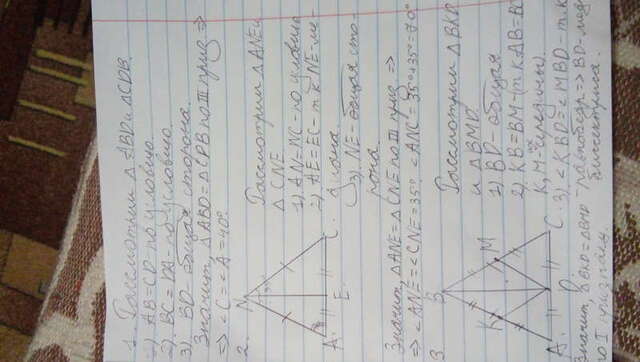 1. Рассмотрим △ ABD и △CDB.
1) AB=CD-по условию
2) BC=DA-по условию
3) BD-общая сторона.
Значит △ABD=△CDB по III призн. =>
=> <C=<A=40°.
2.
N
A E. C.
Рассмотрим △ANE и
△CNE
1) AN=NC-по условию
2) AE=EC-т.к NE-ме-
диана.
3) NE-общая сто-
рона
Значит, △ANE=△CNE по III призн =>
=> <ANE=<CNE=35° <ANC=35°+35°=70°
3
B
K M
A D C
Рассмотрим △BKD
и △BMD
1) BD-общая
2) KB=BM-(т.к AB=BC
K, M-середины).
3) <KBD=<MBD-т.к
Значит, △BKD=△BMD
по I признаку.
равнобедр.=> BD-мед
биссектриса.